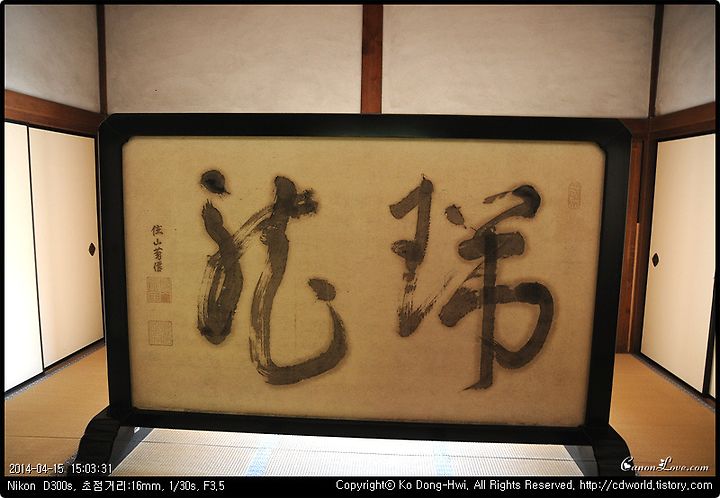 瑞龍
住山
2014-04-15 15:03:31
CanonLove.com
Nikon D300s, 초점거리:16mm, 1/30s, F3.5
Copyright© Ko Dong-Hwi, All Rights Reserved, http://cdworld.tistory.com